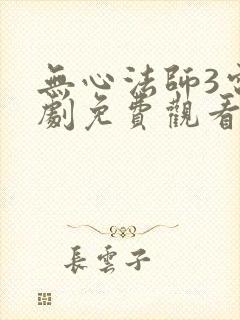 無心法師3電
劇免費觀看
長雲子